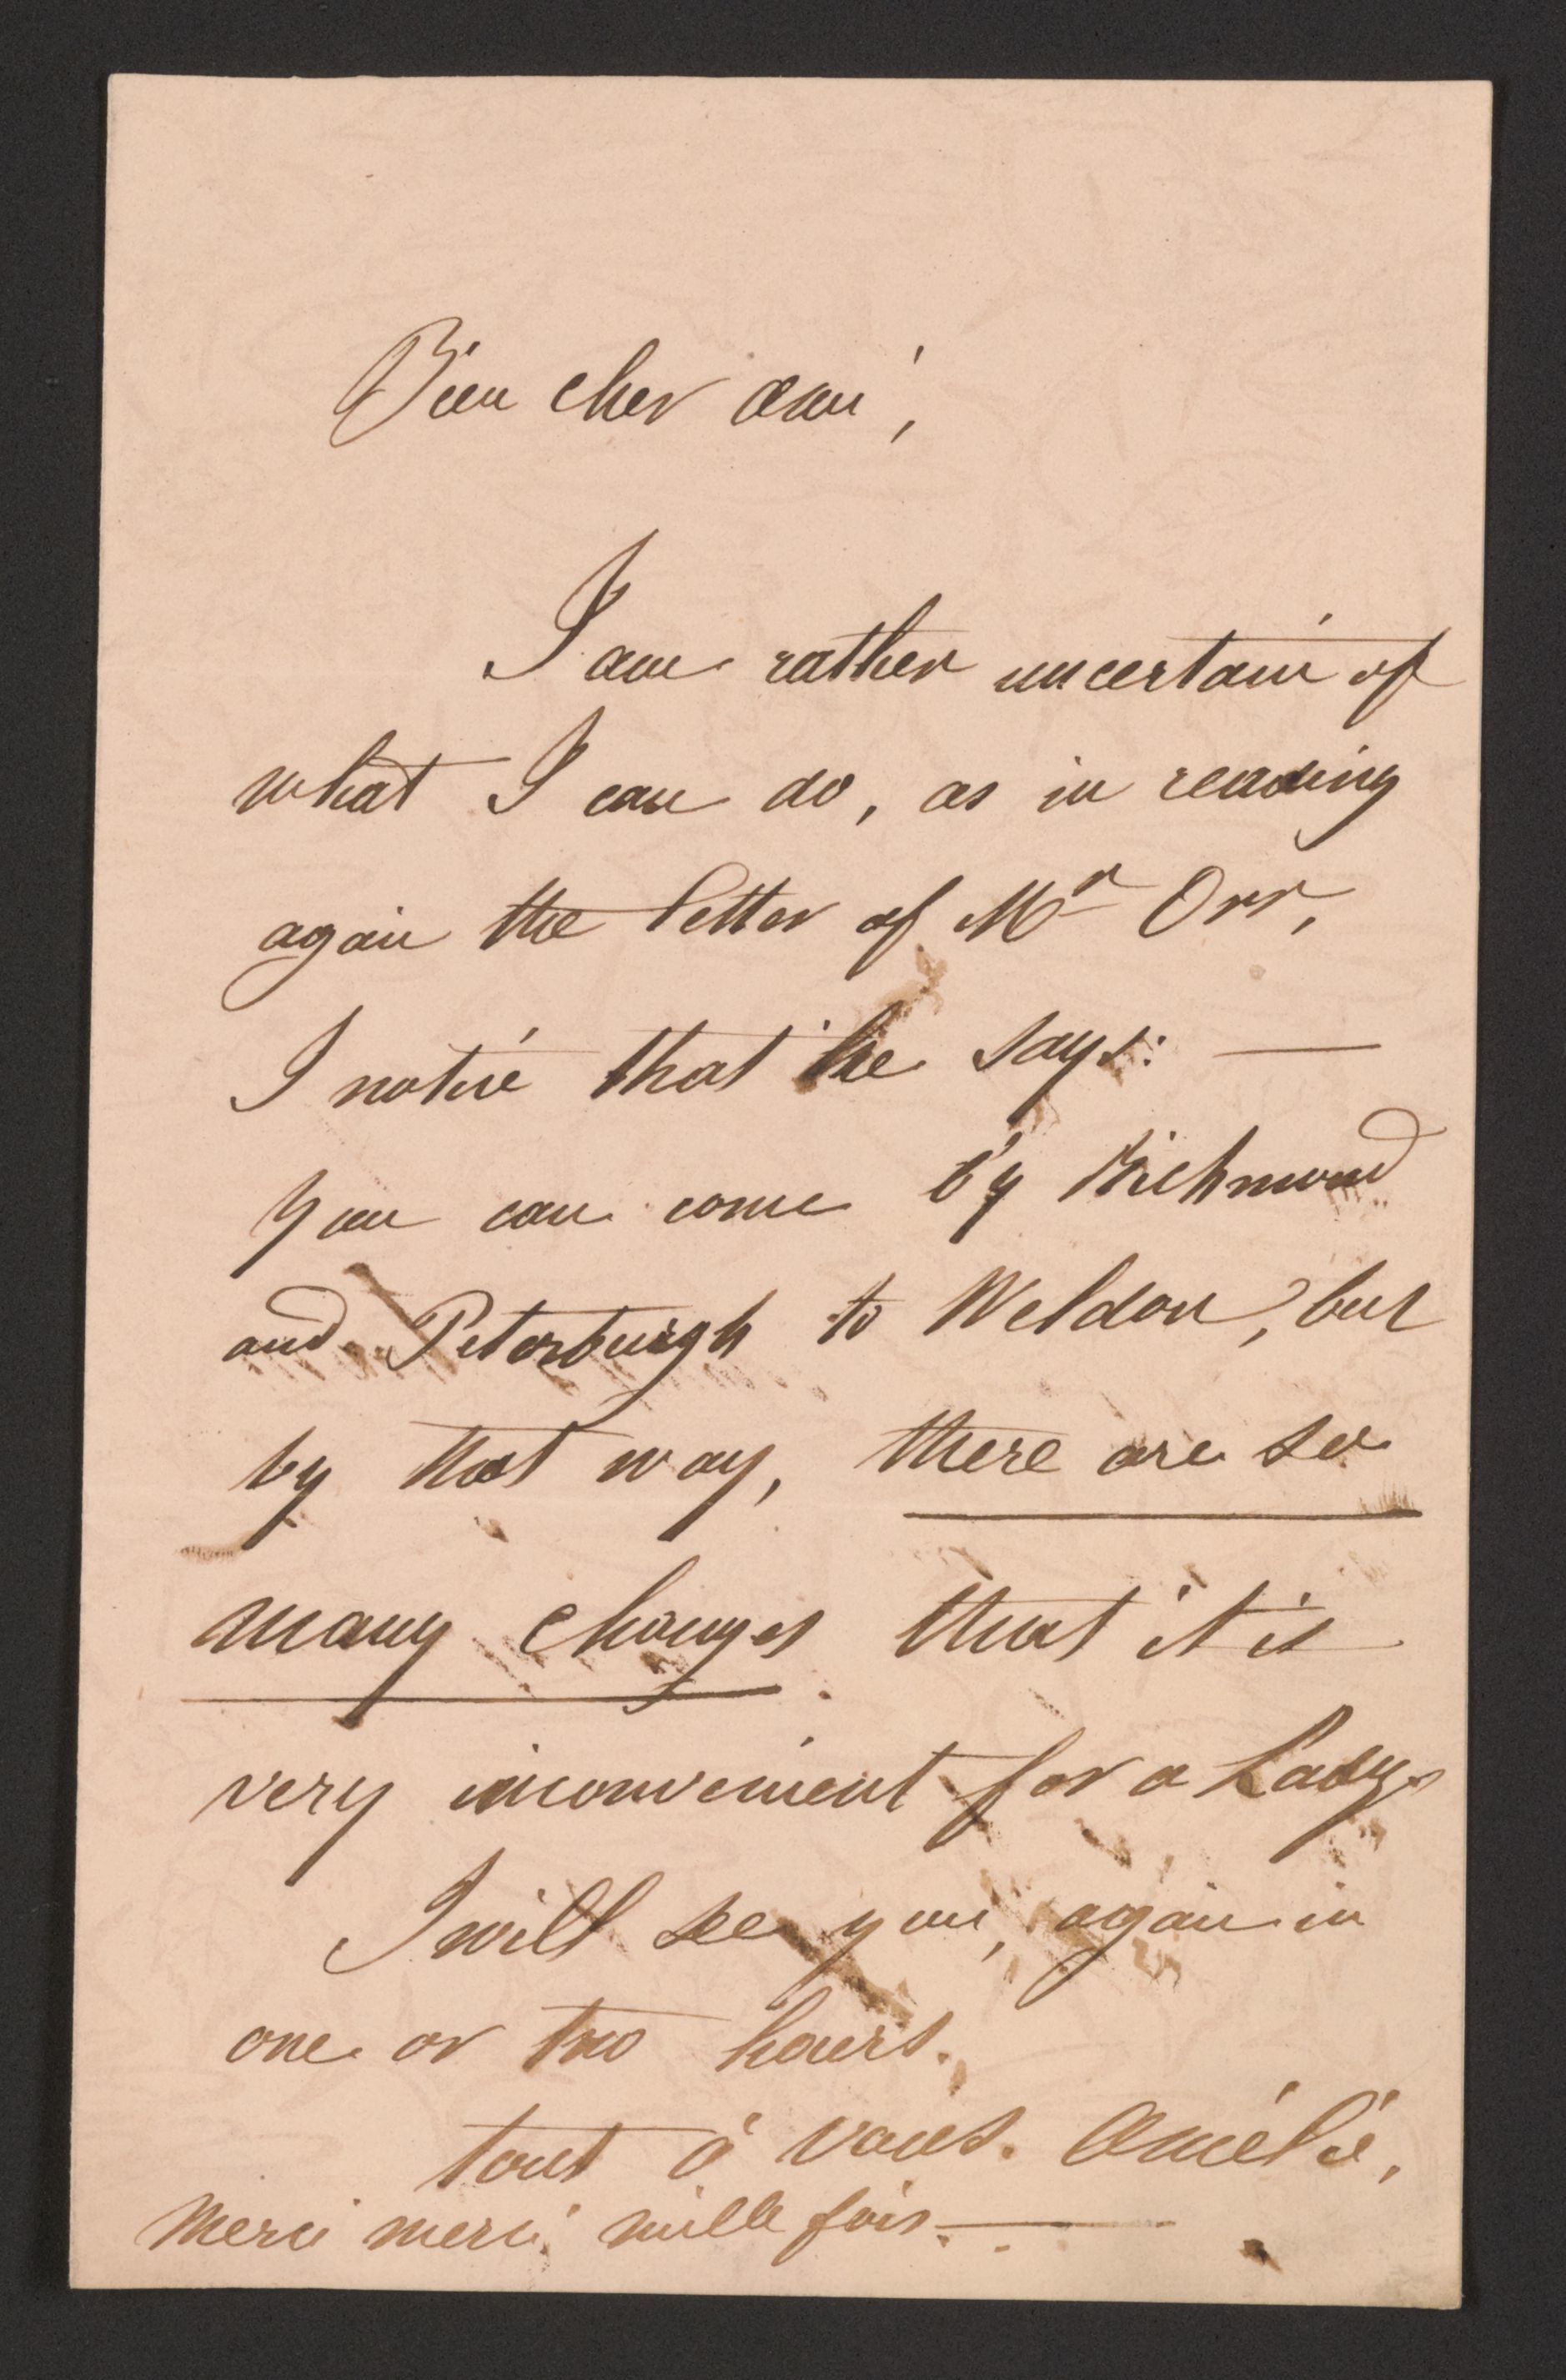 Bien cher ami,
I am rather uncertain of
what I can do, as in reading
again the letter of Mr Orr,
I notice that he says: —
you can come by Richmond
and Petersburgh to Weldon, but
by that way, there are so
many changes that it is
very inconvenient for a Lady.
I will see you, again in
one or two hours.
tout à vous. Amélie,
Merci merci mille fois. —